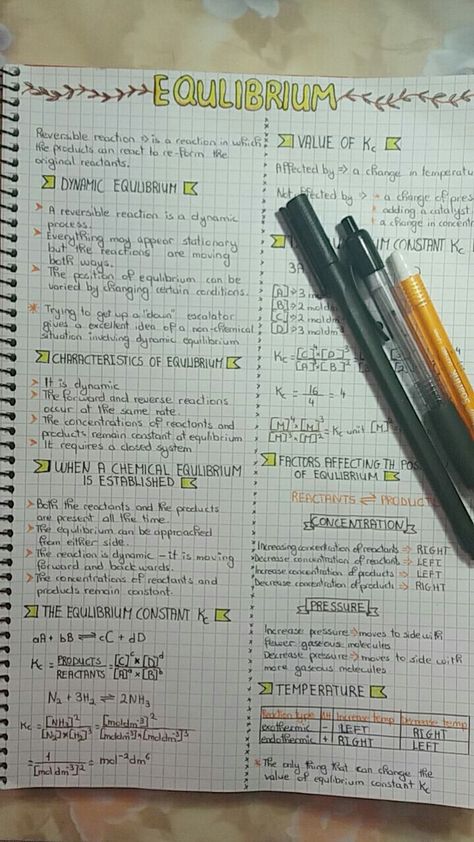 EQULIBRIUM
Reversible reaction => is a reaction in which
the products can react to re-form the
original reactants.
DYNAMIC EQULIBRIUM
A reversible reaction is a dynamic
process.
Everything may appear stationary
but the reactions are moving
both ways.
The position of equilibrium can be
varied by changing certain conditions.
* Trying to get up a "down" escalator
gives a excellent idea of a non-chemical
situation involving dynamic equilibrium
CHARACTERISTICS OF EQULIBRIUM
It is dynamic
The forward and reverse reactions
occur at the same rate.
The concentrations of reactants and
products remain constant at equlibrium
It requires a closed system
WHEN A CHEMICAL EQULIBRIUM
IS ESTABLISHED
Both the reactants and the products
are present all the time.
The equlibrium can be approached
from either side.
The reaction is dynamic - it is moving
forward and backwards.
The concentrations of reactants and
products remain constant.
THE EQULIBRIUM CONSTANT Kc
aA + bB ⇌ cC + dD
Kc = PRODUCTS / REACTANTS = [C]^c × [D]^d / [A]^a × [B]^b
N₂ + 3H₂ ⇌ 2NH₃
Kc = [NH₃]² / [N₂]×[H₂]³ = [moldm⁻³]² / [moldm⁻³]×[moldm⁻³]³
= 1 / [moldm⁻³]² = mol⁻²dm⁶
VALUE OF Kc
Affected by => a change in temperatu
Not affected by => a change of pres
adding a catalyst
a change in concent
UM CONSTANT Kc
3A
[A]→3 m
[B]→2 moldm
[C]→2 mol
[D]→3 mol
Kc = [C]⁴×[D]³ / [A]³×[B]²
Kc = 16 / 4 = 4
[M]⁴×[M]³ / [M]³×[M]² = Kc unit
FACTORS AFFECTING TH POS
OF EQULIBRIUM
REACTANTS ⇌ PRODUCT
CONCENTRATION
Increasing concentration of reactants → RIGHT
Decrease concentration of reactants → LEFT
Increase concentration of products → LEFT
Decrease concentration of products → RIGHT
PRESSURE
Increase pressure → moves to side with
fewer gaseous molecules
Decrease pressure → moves to side with
more gaseous molecules.
TEMPERATURE
Reaction type ΔH Increase temp Decrease temp
exothermic - LEFT RIGHT
endothermic + RIGHT LEFT
* The only thing that can change the
value of equlibrium constant Kc